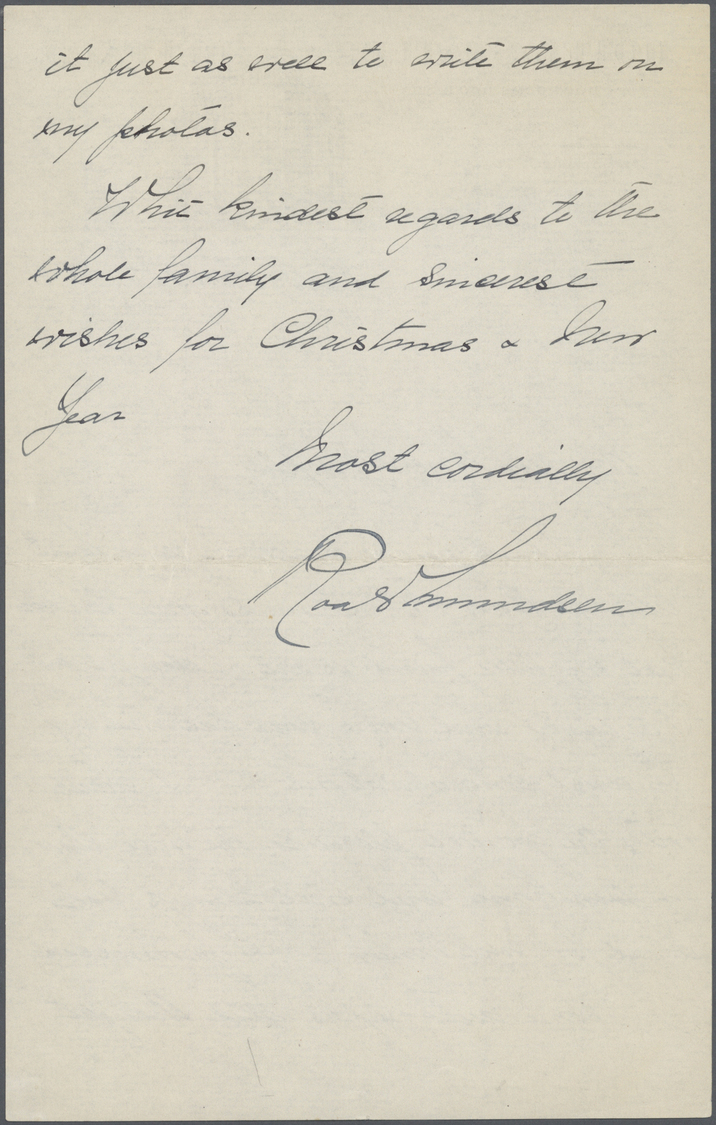 it just as well to write them on
my photos.
Whit kindest regards to the
whole family and sincerest
wishes for Christmas & New
Year
Most cordially
Roald Amundsen